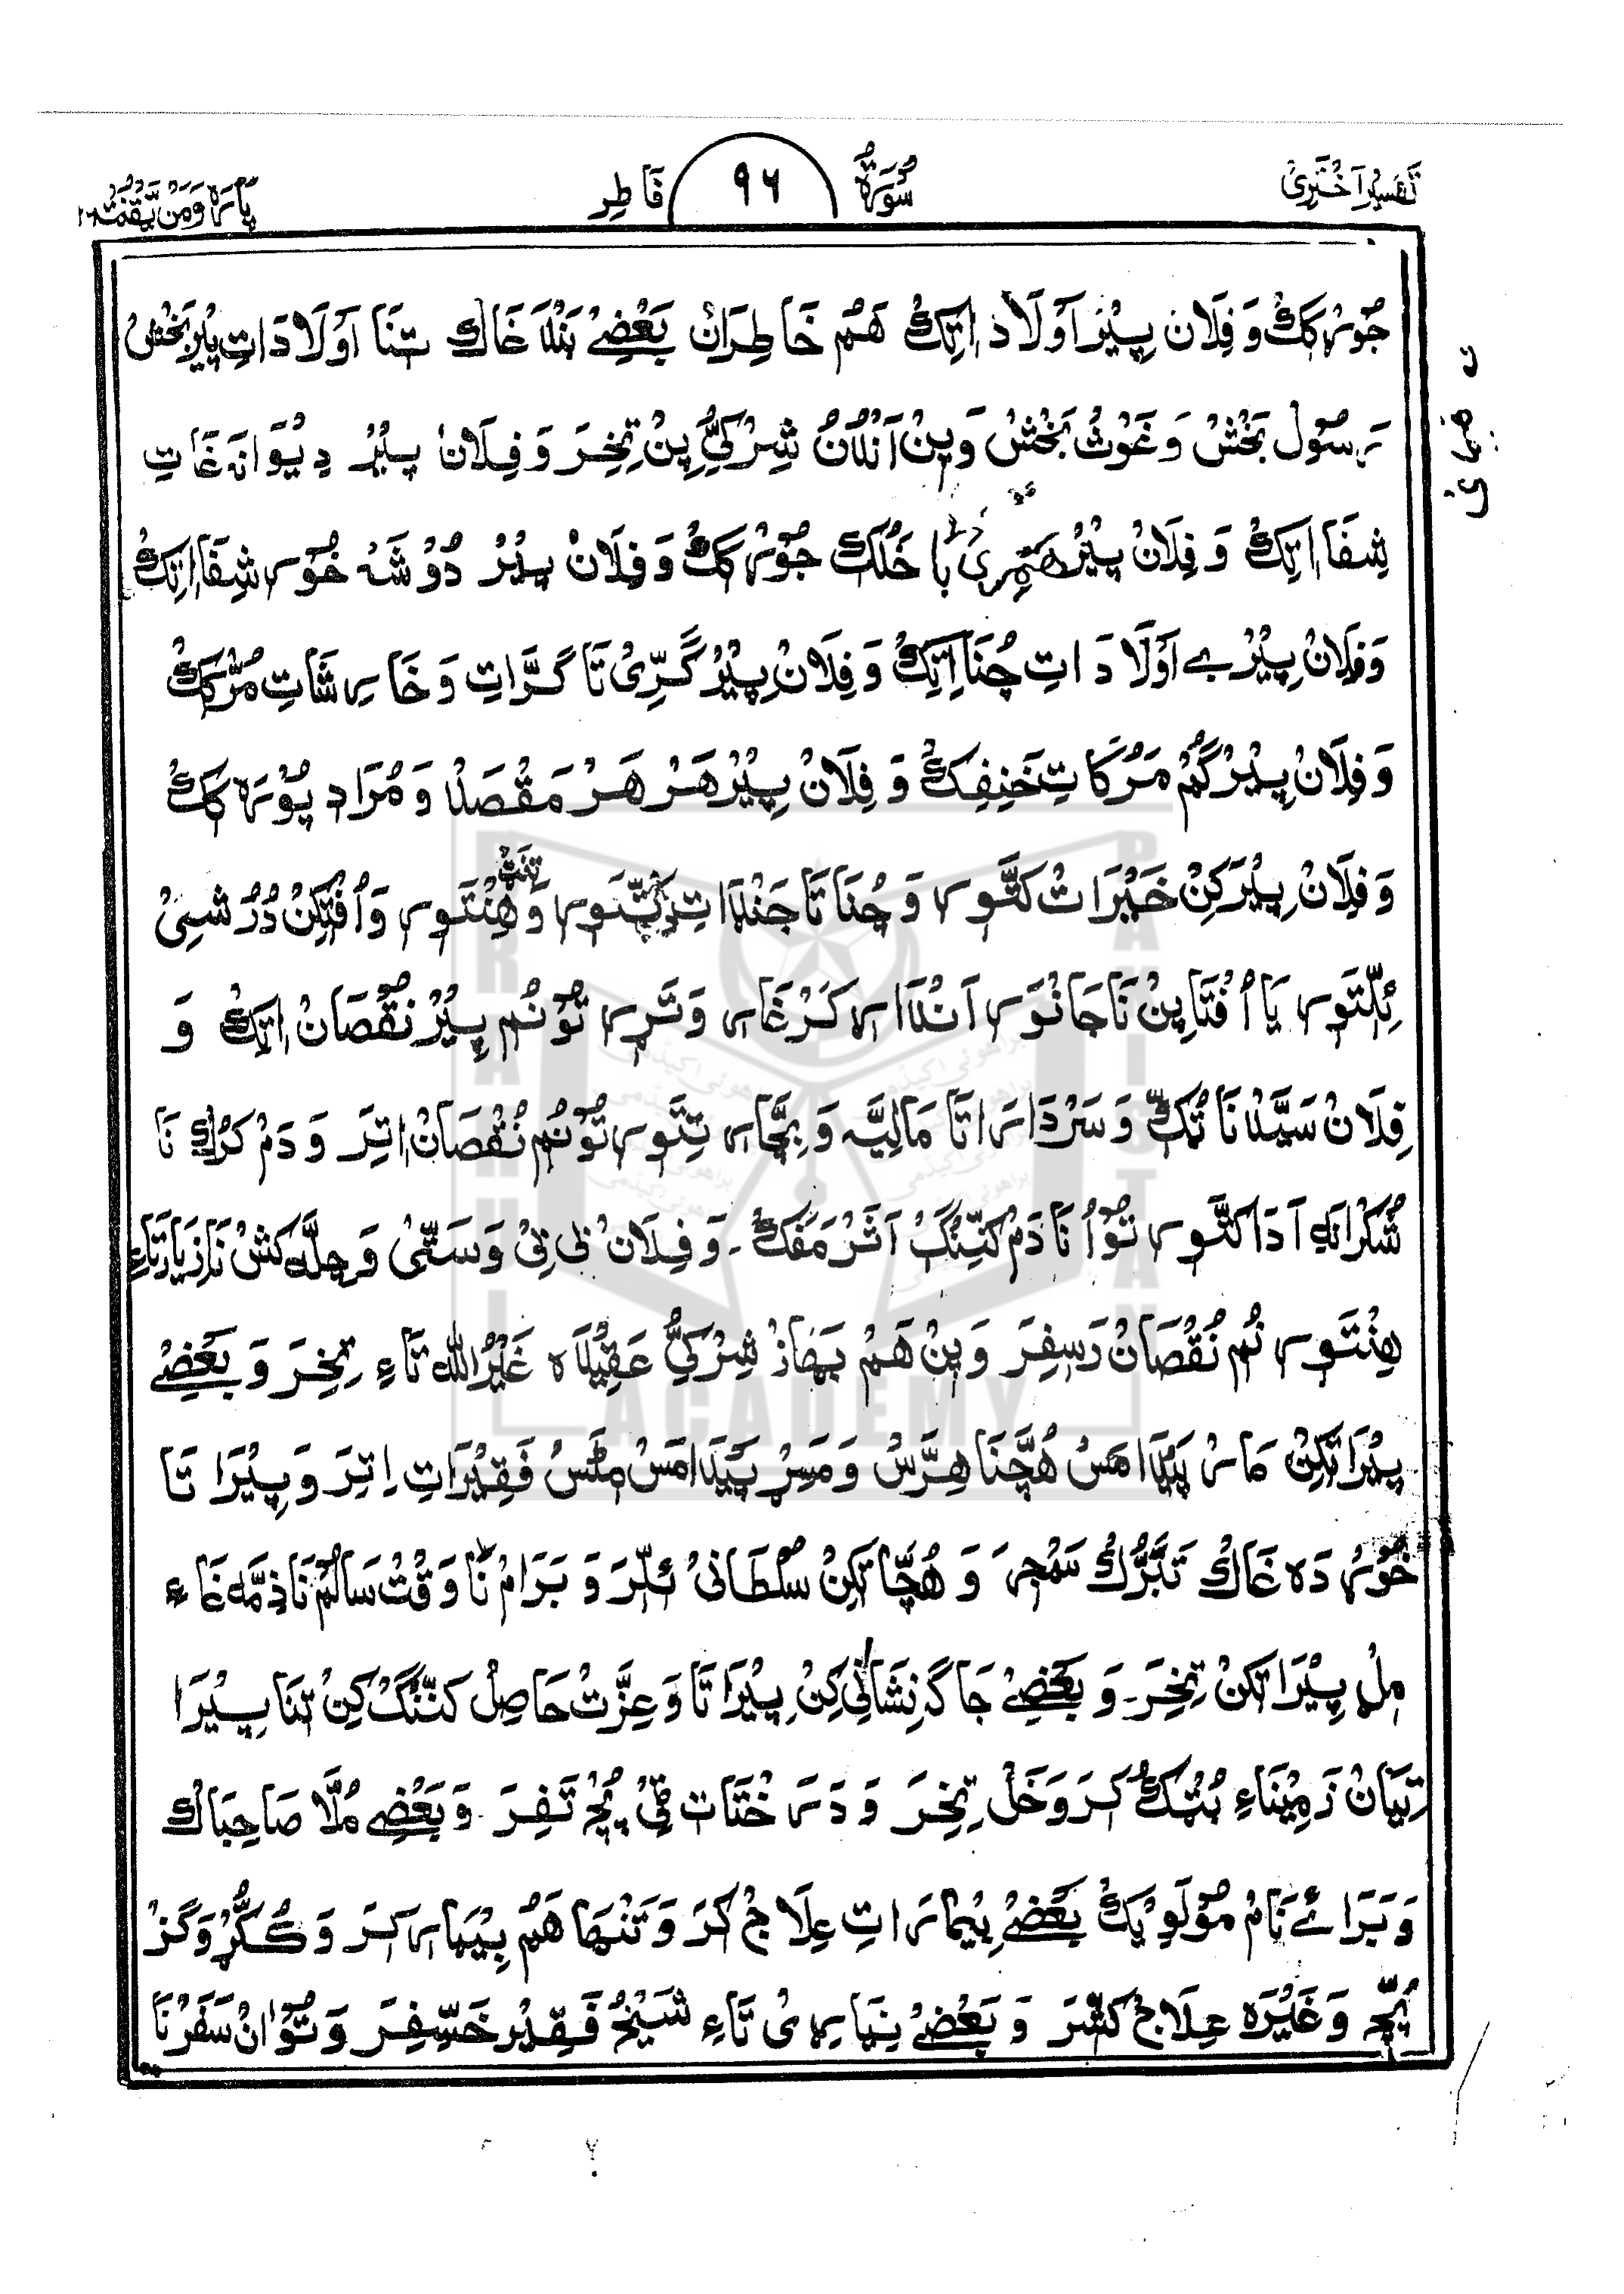 تَفسِیْر آخْتَرِیْ
سُوْرَۃُ ٩٦ فَاطِر
پَارَہ وَمَنْ يَّقْنُتْ ٢٢
جُوْر کَکْ وَ فِلَانْ پِیْرْ اَوْلَادْ اِتِکْ هَمْ خَاطِرَانْ بَعْضِےْ بَنْدَغَاکْ تِنَا اَوْلَادَاتِ پِیْربَخْش
رَسُوْل بَخْشْ وَ غَوْثْ بَخْشْ وَ پِنْ اَنْدُنْ شِرْکِیْ پِنْ تِخِرَ وَ فِلَانْ پِیْرْ دِیْوَانَہ غَاتِ
شِفَا اِتِکْ وَ فِلَانْ پِیْرْ بَا خَلْکْ جُوْر کَکْ وَ فِلَانْ پِیْرْ دُوْشَہ خُوْر شِفَا اِتِکْ
وَ فِلَانْ پِیْرْ بے اَوْلَادَاتِ چُنَا اِتِکْ وَ فِلَانْ پِیْرْ گَرِّیْ تَا گَرَّاتِ وَ خَارِشَاتِ مُرّ کَکْ
وَ فِلَانْ پِیْرْ گُمْ مَرُکَاتِ خَنِفِکْ وَ فِلَانْ پِیْرْ هَرْ هَرْ مَقْصَدْ وَ مُرَادْ پُوْرَہ کَکْ
وَ فِلَانْ پِیْرَکِنْ خَیْرَاتْ کَتَّوْر وَ چُنَا تَا جَنْدَاتِ وَ هِنْتَوْر وَ اُفْتِکِنْ دُرْشِیْ
ئِلِّتَوْر یَا اُفْتَا پِنْ نَا جَانْوَر اَنْدَا اِر کَرْغَار وَ تَرِر تُوْ نُم پِیْرْ نُقْصَانْ اِتِکْ وَ
فِلَانْ سَیَّدْ نَا ٹُکّ وَ سَرْدَارَاتَا مَالِیَہ وَ بِجَّار تِتَوْر تُوْ نُم نُقْصَانْ اِتِرَ وَ دَمْ کَرُکْ نَا
شُکْرَانَہ اَدَا کَتَّوْر تُوْ اُنَا دَمْ کَنِّنْگْ اَثَرْ مَفَکْ ۔ وَ فِلَانْ بِیْ بِیْ وَ سَتّیْ وَ چِلَّہ کَشْ نَا زِیَارَتَاءِ
هِنْتَوْر نُم نُقْصَانْ رَسِفِرَ وَ پِنْ هَمْ بَهَازْ شِرْکِیْ عَقِیْدَہ غَیْرُ اللّٰه تَاءِ تِخِرَ وَ بَعْضِےْ
پِیْرَاتِکِنْ مَارْ پَیْدَا مَسْ هُچَّنَا هِرَّسْ وَ مَسِڑ پَیْدَا مَسْ مِٹَسْ فَقِیْرَاتِ اِتِرَ وَ پِیْرَا تَا
خُوْردَہ غَاکْ تَبَرُّکْ سَمْجِر وَ هُچَّاتِکِنْ سُلْطَانِیْ ئِلِّرَ وَ بَرَامْ نَا وَقْتْ سَالُمْ نَا ذِمَّہ غَاءِ
مِلْ پِیْرَاتِکِنْ تِخِرَ ۔ وَ بَعْضِےْ جَاگَہ نِشَانِیْ کِنْ پِیْرَا تَا وَ عِزَّتْ حَاصِلْ کَنِّنْگْ کِنْ تِنَا پِیْرَا
تِیَانْ زَمِیْنَاءِ بُتْکْ کَرَ وَ خَلْ تِخِرَ وَ دَرَخْتَاتِ ٹِیْ پُچْ تَفِرَ ۔ وَ بَعْضِےْ مُلَّا صَاحِبَاکْ
وَ بَرَائے نَامْ مَوْلَوِیْکْ بَعْضِےْ بِیْمَارَاتِ عِلَاجْ کَرَ وَ تَنْهَا هَمْ بِیْمَار کَرَ وَ کُکُّڑْ وَ گَزْ
پُچّ وَ غَیْرَہ عِلَاجْ کَشِّرَ وَ بَعْضِےْ بِیْمَارِیْ تَاءِ شَیْخْ فَقِیْرْ خَسِّفِرَ وَ تُوْ اَنْ سَفَرْ نَا